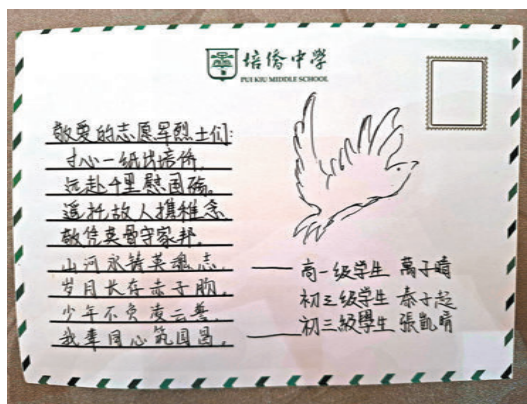 培僑中學
PUI KIU MIDDLE SCHOOL
敬爱的志愿军烈士们:
寸心一纸出培侨,
远赴千里慰国殇。
遥托故人携雅念
敬凭英骨守家邦。
山河永铸英魂志,
岁月长存赤子
少年不负凌云誉,
我辈同心筑国
高一级学生 萬子晴
初三级学生 秦子起
初三級學生 張凱晴